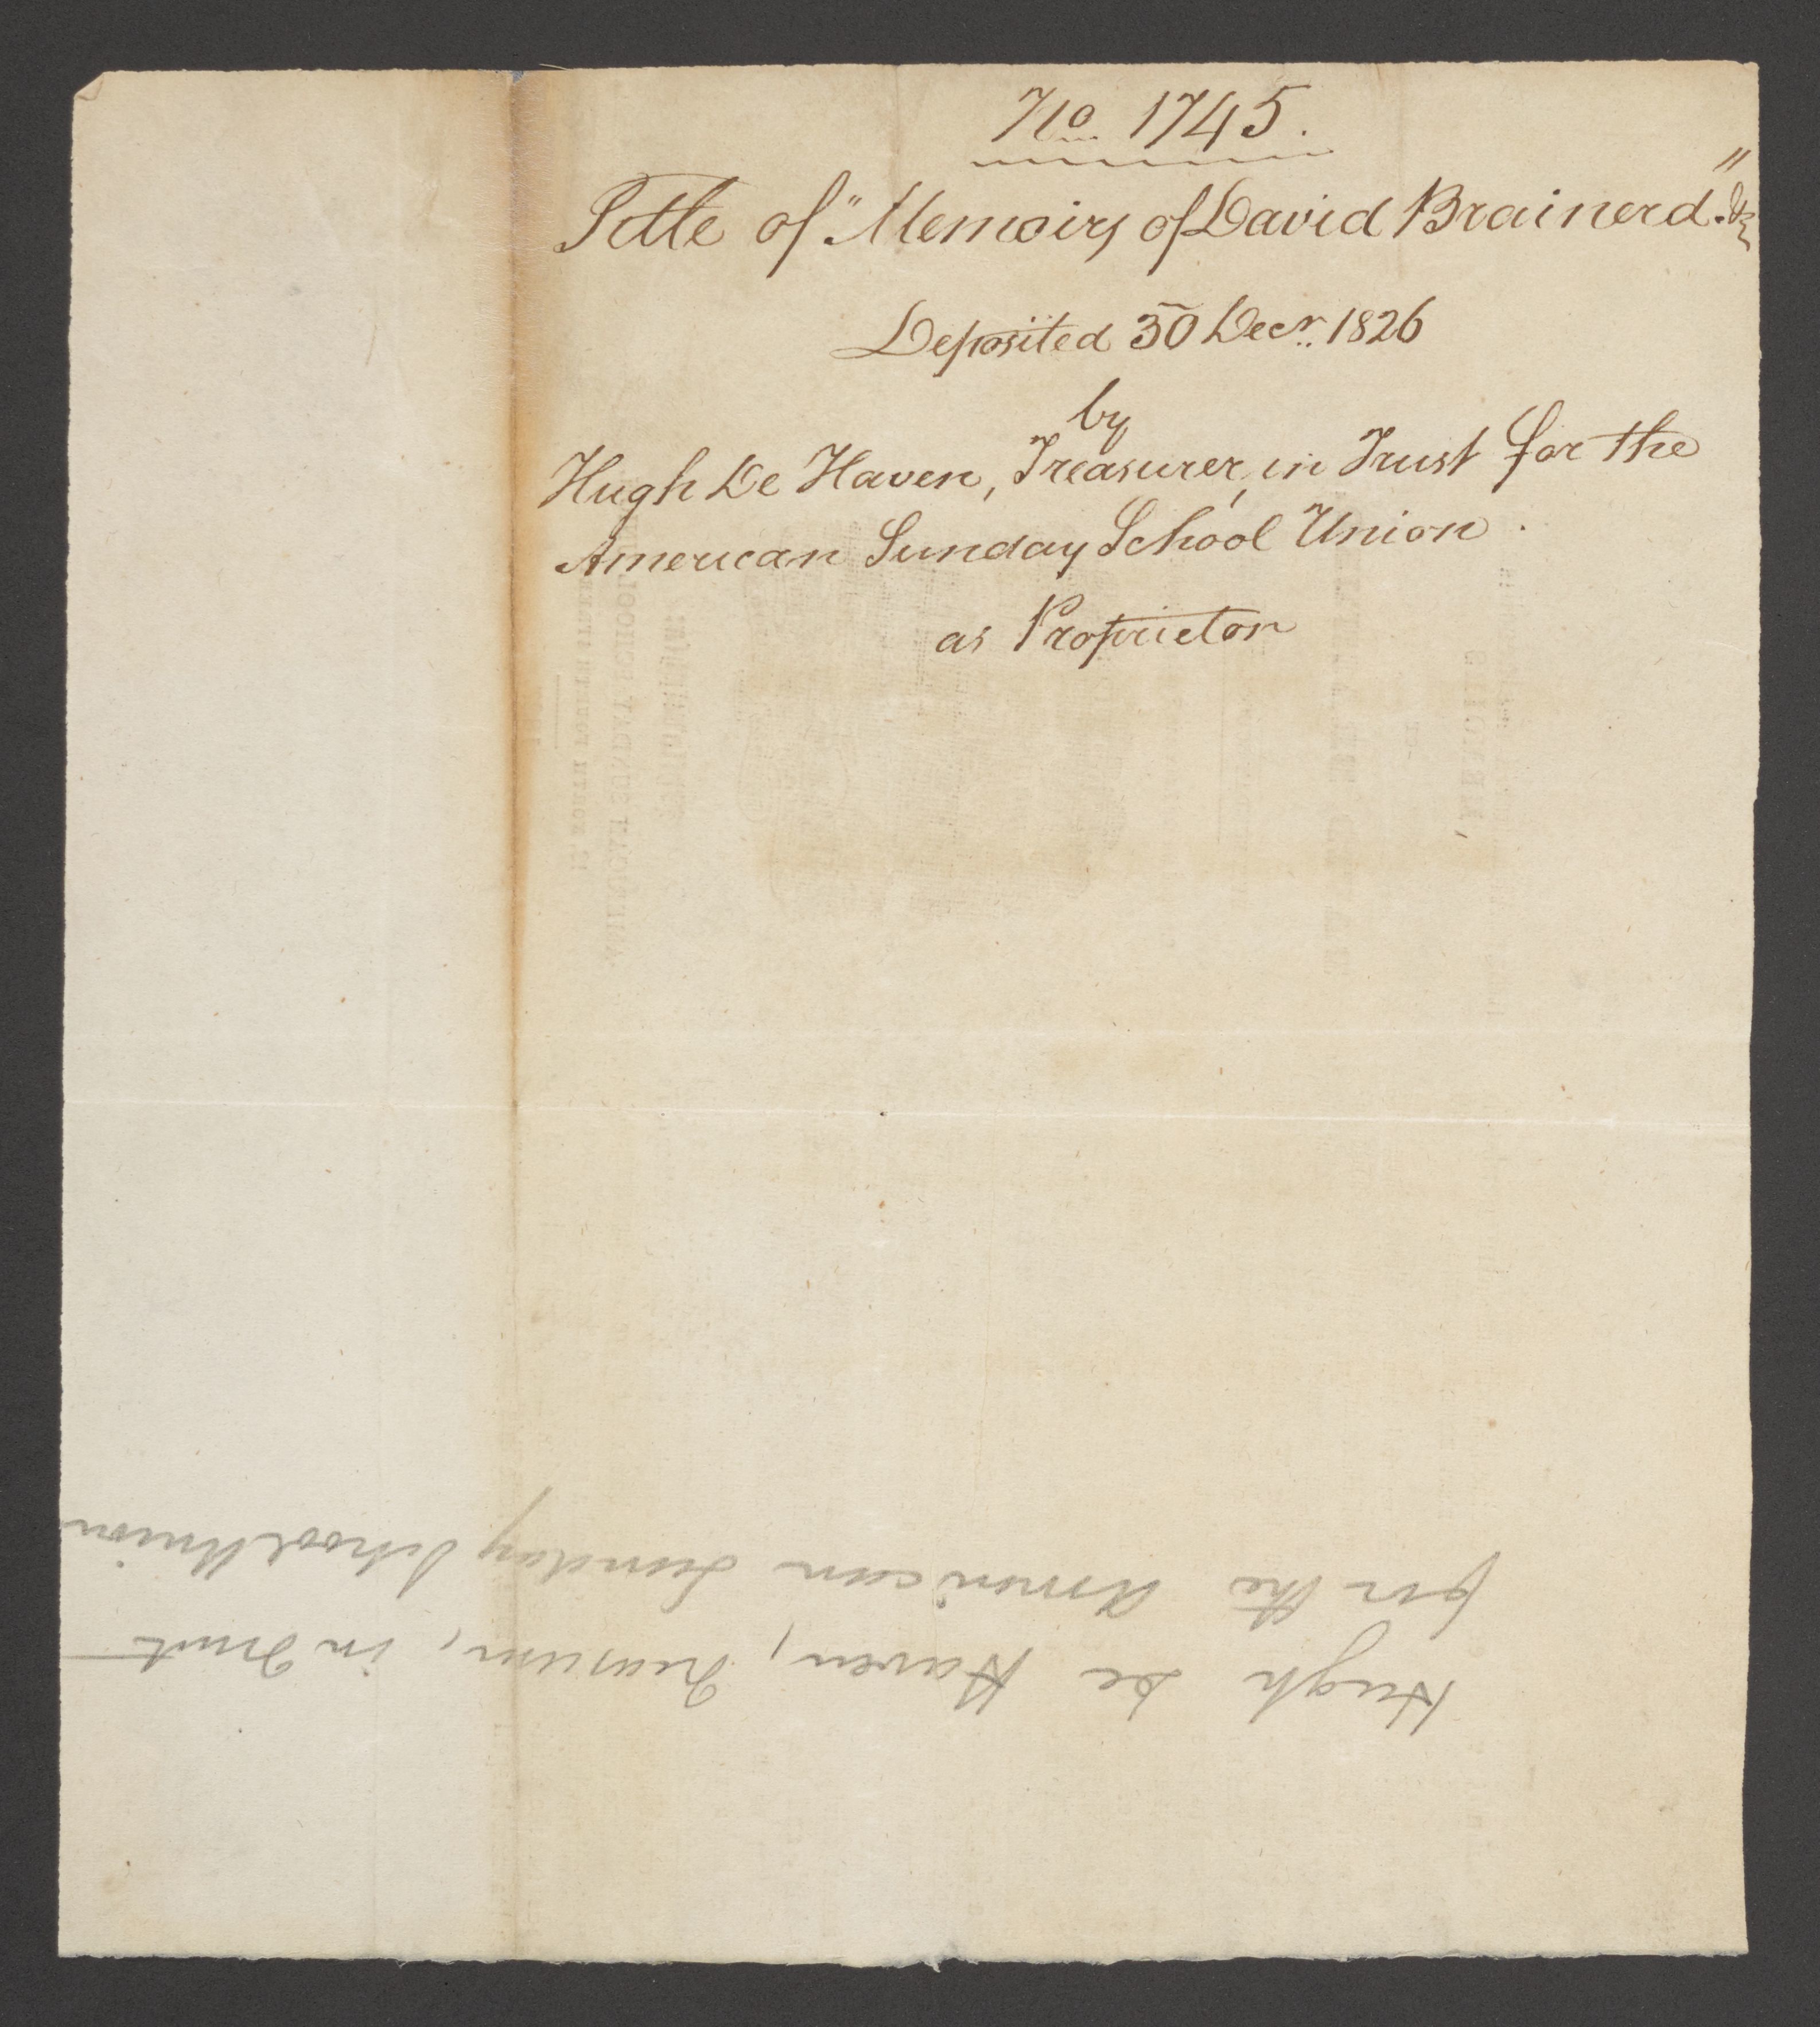 No. 1745.
Title of "Memoirs of David Brainerd" &c
Deposited 30 Decr. 1826
by
Hugh De Haven, Treasurer, in Trust for the
American Sunday School Union.
as Proprietor
Hugh De Haven, Treasurer, in Trust
for the American Sunday School Union